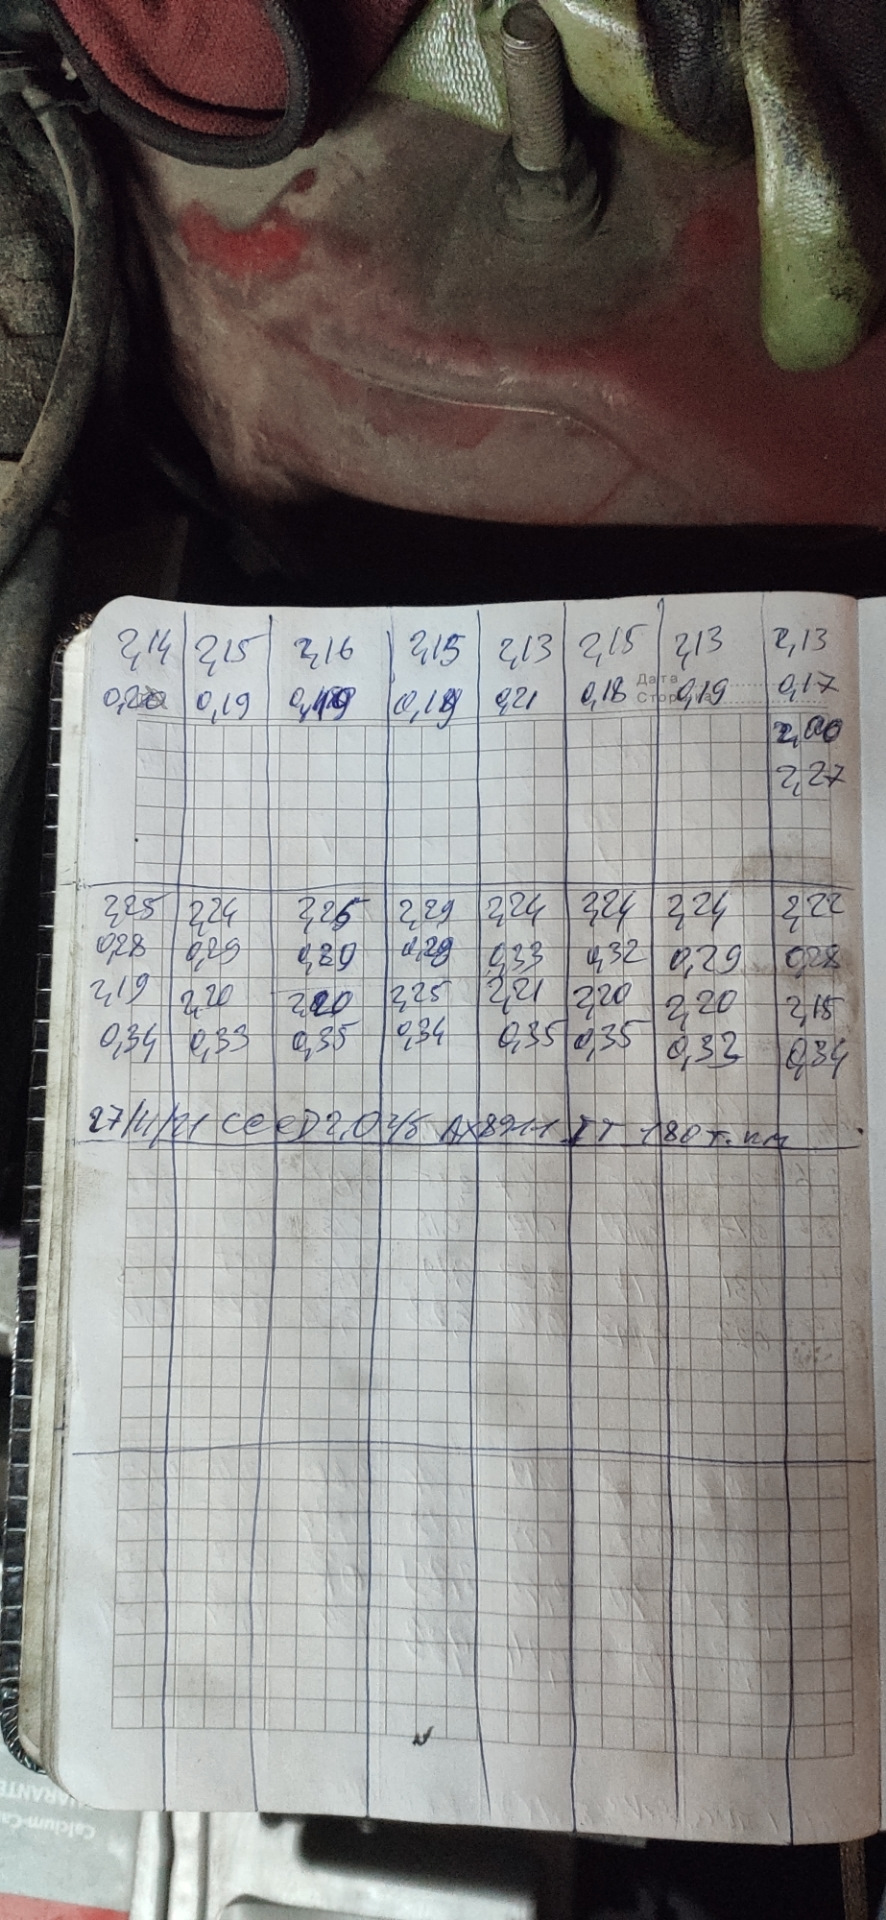 2,14 2,15 2,16 2,15 2,13 2,15 2,13 2,13
Дата
0,20 0,19 0,19 0,19 0,21 0,18 0,19 0,17
2,00
2,27
2,25 2,24 2,25 2,29 2,24 2,24 2,24 2,22
0,28 0,29 0,29 0,29 0,33 0,32 0,29 0,28
2,19 2,20 2,20 2,25 2,21 2,20 2,20 2,15
0,34 0,33 0,35 0,34 0,35 0,35 0,33 0,34
27/4/21 CEED 2,0 180 т.км
Calcium-Ca